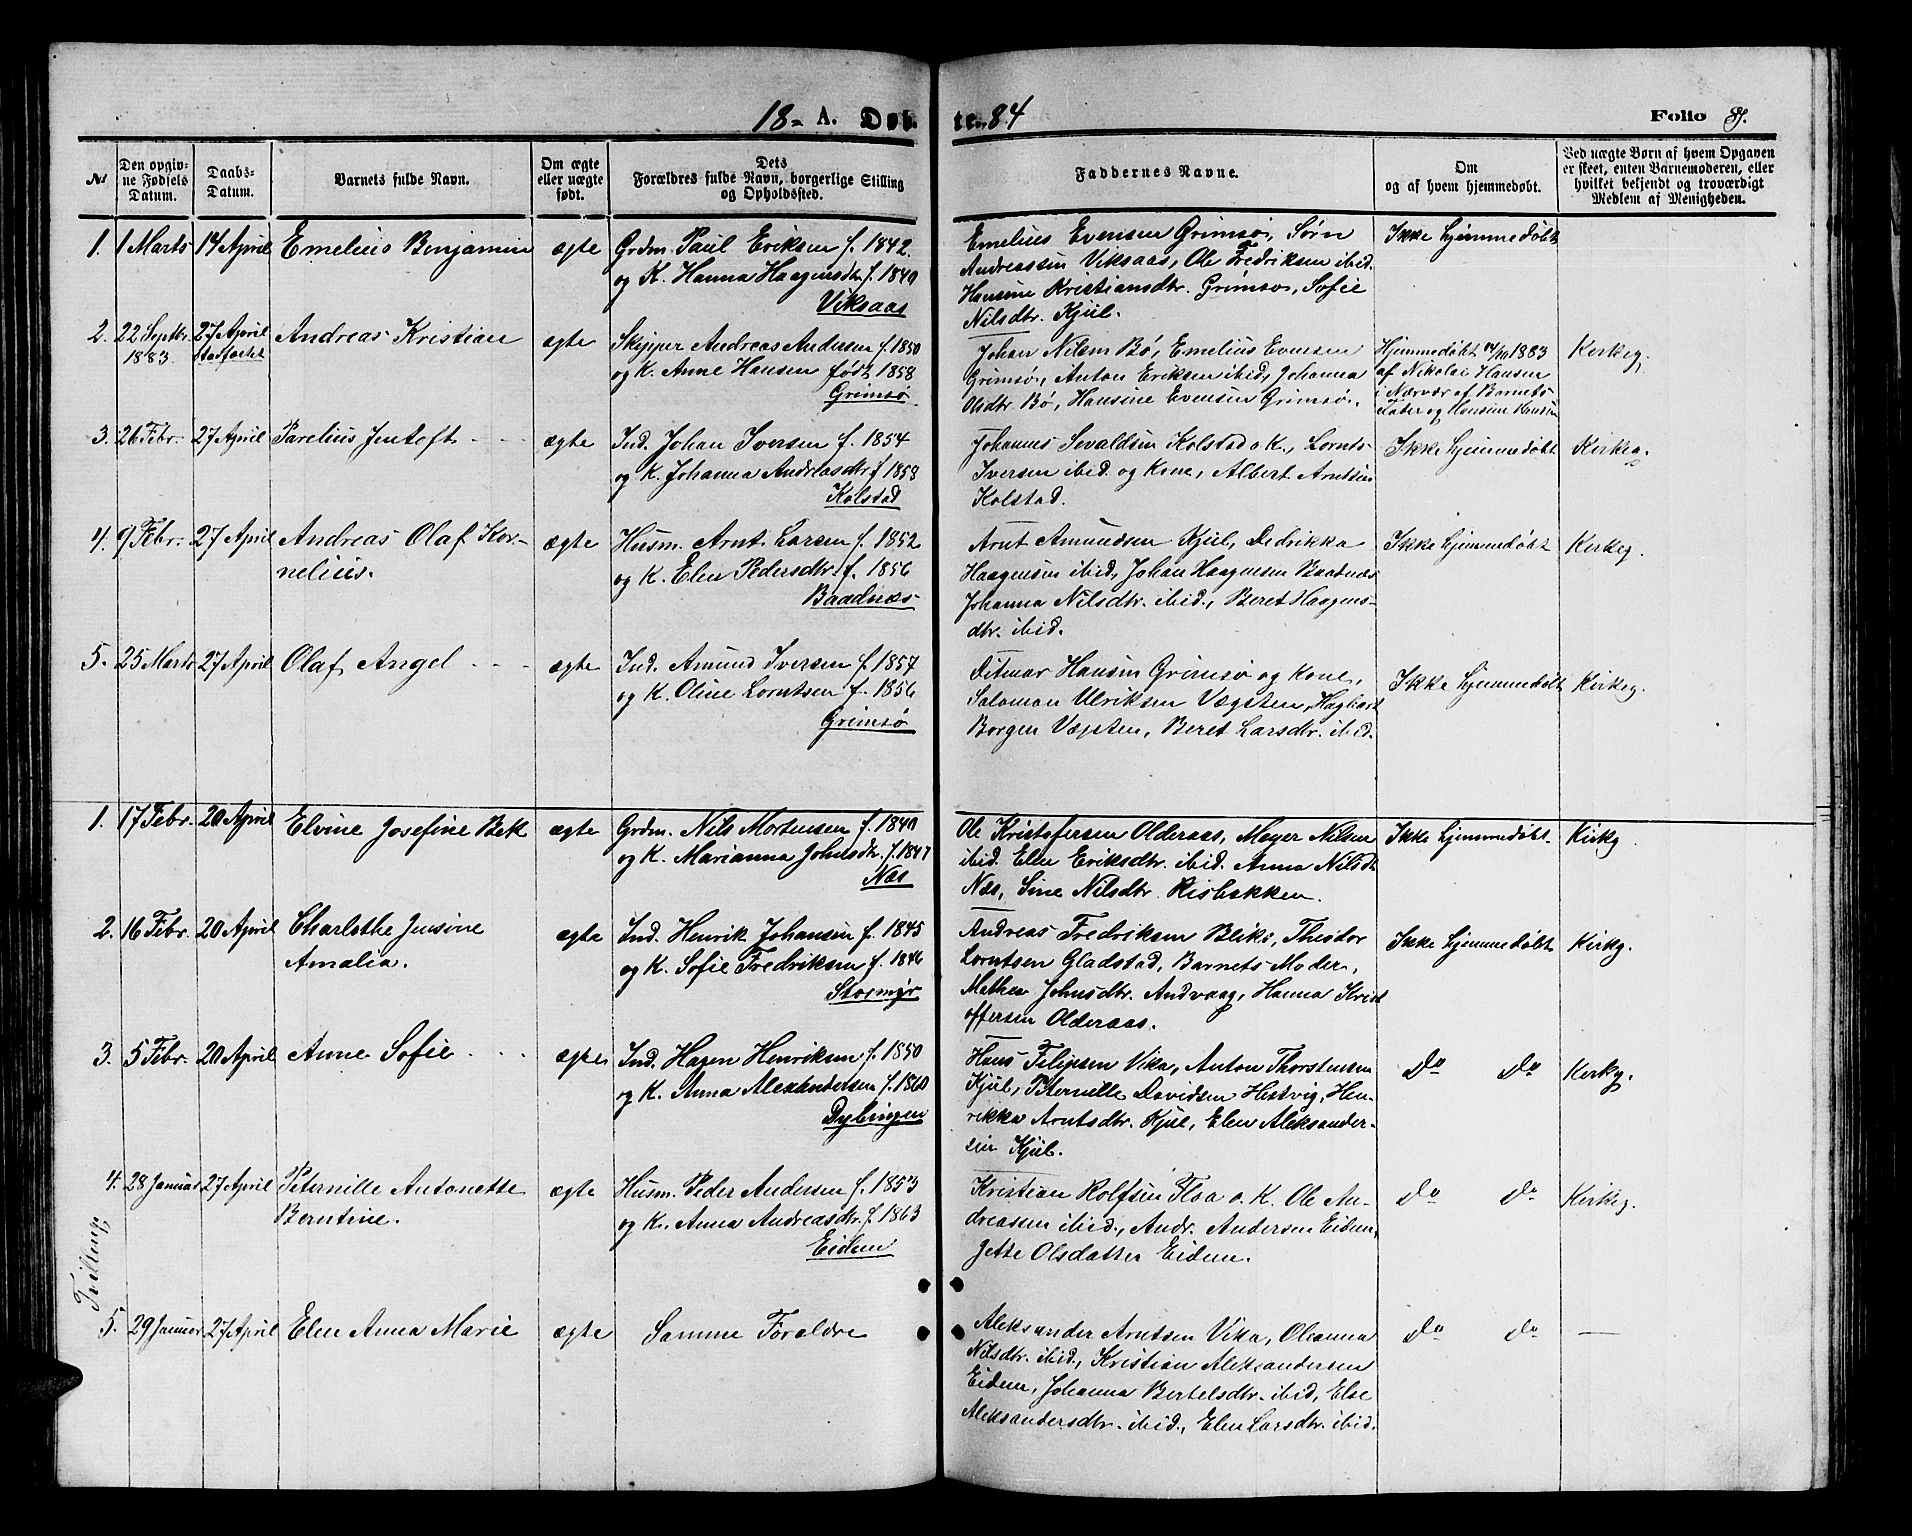 18- A. Døb- te. 84
Folio 8.
No
Den opgiv-
ne Fødsels
Datum.
Daabs-
Datum.
Barnets fulde Navn.
Om ægte
eller uægte
født.
Dets
Forældres fulde Navn, borgerlige Stilling
og Opholdssted.
Faddernes Navne.
Om
og af hvem hjemmedøbt.
Ved uægte Børn af hvem Opgaven
er skeet, enten Barnemoderen, eller
hvilket bekjendt og troværdigt
Medlem af Menigheden.
1. 1 Marts 14 April Emelius Benjamin ægte
Grdm. Paul Eriksen f. 1842
og K. Hanna Haagensdtr f. 1840
Viksaas
Emelius Evensen Grimsø, Sørn
Andreassen Viksaas, Ole Fredriksen ibid.
Hansine Kristiansdtr. Grimsø, Sofie
Nilsdtr. Kjul.
Ikke hjemmedøbt
2. 22 Septbr. 27 April Andreas Kristian ægte
1883. stadfæstet
Skipper Andreas Andersen f. 1850
og K. Anne Hansen født 1858
Grimsø
Johan Nilsen Bø, Emelius Evensen
Grimsø, Anton Eriksen ibid, Johanna
Olsdtr. Bø, Hansine Evensen Grimsø.
Hjemmedøbt 14/10 1883
af Nikolai Hansen
i Nærvær af Barnets
Fader og Hansine Hansen
Kirkeg.
3. 26 Febr. 27 April Parelius Jentoft - - ægte
Ind. Johan Iversen f. 1854
og K. Johanna Andreasdtr f 1858
Kolstad
Johannes Sevaldsen Kolstad o K., Lornts
Iversen ibid. og Kone, Albert Arntsen
Kolstad.
Ikke hjemmedøbt Kirkeg.
4. 9 Febr. 27 April Andreas Olaf Kor- ægte
nelius.
Husm. Arnt Larsen f. 1852
og K. Elen Pedersdtr. f. 1856
Baadnæs
Arnt Amundsen Kjul, Dedrikka
Haagensen ibid, Johan Haagensen Baadnæs
Johanna Nilsdtr. ibid., Beret Haagens-
dtr. ibid.
Ikke hjemmedøbt Kirkeg.
5. 25 Marts 27 April Olaf Angel - - - ægte
Ind. Amund Iversen f. 1857
og K. Oline Lorntsen f. 1856
Grimsø
Ditmar Hansen Grimsø og Kone,
Salomon Ulriksen Vægsten, Hagbart
Borgen Vægsten, Beret Larsdtr. ibid.
Ikke hjemmedøbt Kirkeg.
1. 17 Febr. 20 April Elvine Josefine Bek ægte
Grdm. Nils Mortensen f. 1840
og K. Marianna Johnsdtr. f. 1847
Næs
Ole Kristofersen Olderaas, Meyer Nilsen
ibid. Elen Eriksdtr. ibid. Anna Nilsdtr
Næs, Sine Nilsdtr. Risbakken.
Ikke hjemmedøbt. Kirkg
2. 16 Febr. 20 April Charlothe Jensine ægte
Amalia.
Ind. Henrik Johansen f. 1845
og K. Sofie Fredriksen f. 1846
Stormyr
Andreas Fredriksen Bliks, Theodor
Lorntsen Gladstad, Barnets Moder,
Mathea Johnsdtr. Andvaag, Hanna Krist
offersen Olderaas.
Ikke hjemmedøbt Kirkg.
3. 5 Febr. 20 April Anne Sofie - - - ægte
Ind. Hagen Henriksen f. 1850
og K. Anna Alexandersen f. 1860
Dybingen
Hans Filipsen Vika, Anton Thorstensen
Kjul, Peternille Davidsen Hestvig, Hen-
rikka Arntsdtr. Kjul, Elen Aleksander-
sen Kjul.
do do Kirkg.
Tvilling
4. 28 Januar 27 April Peternille Antonette ægte
Berntine.
Husm. Peder Andersen f. 1853
og K. Anna Andreasdtr. f. 1863
Eidem
Kristian Rolfsen Floa o. K. Ole An-
dreassen ibid., Andr. Andersen Eidem,
Jette Olsdatter Eidem.
do do Kirkeg.
5. 29 Januar 27 April Elen Anna Marie ægte
Samme Foraldre
Aleksander Arntsen Vika, Oleanna
Nilsdtr. ibid., Kristian Aleksandersen
Eidem, Johanna Bertelsdtr. ibid, Else
Aleksandersdtr. ibid., Elen Larsdtr. ibid.
do do —